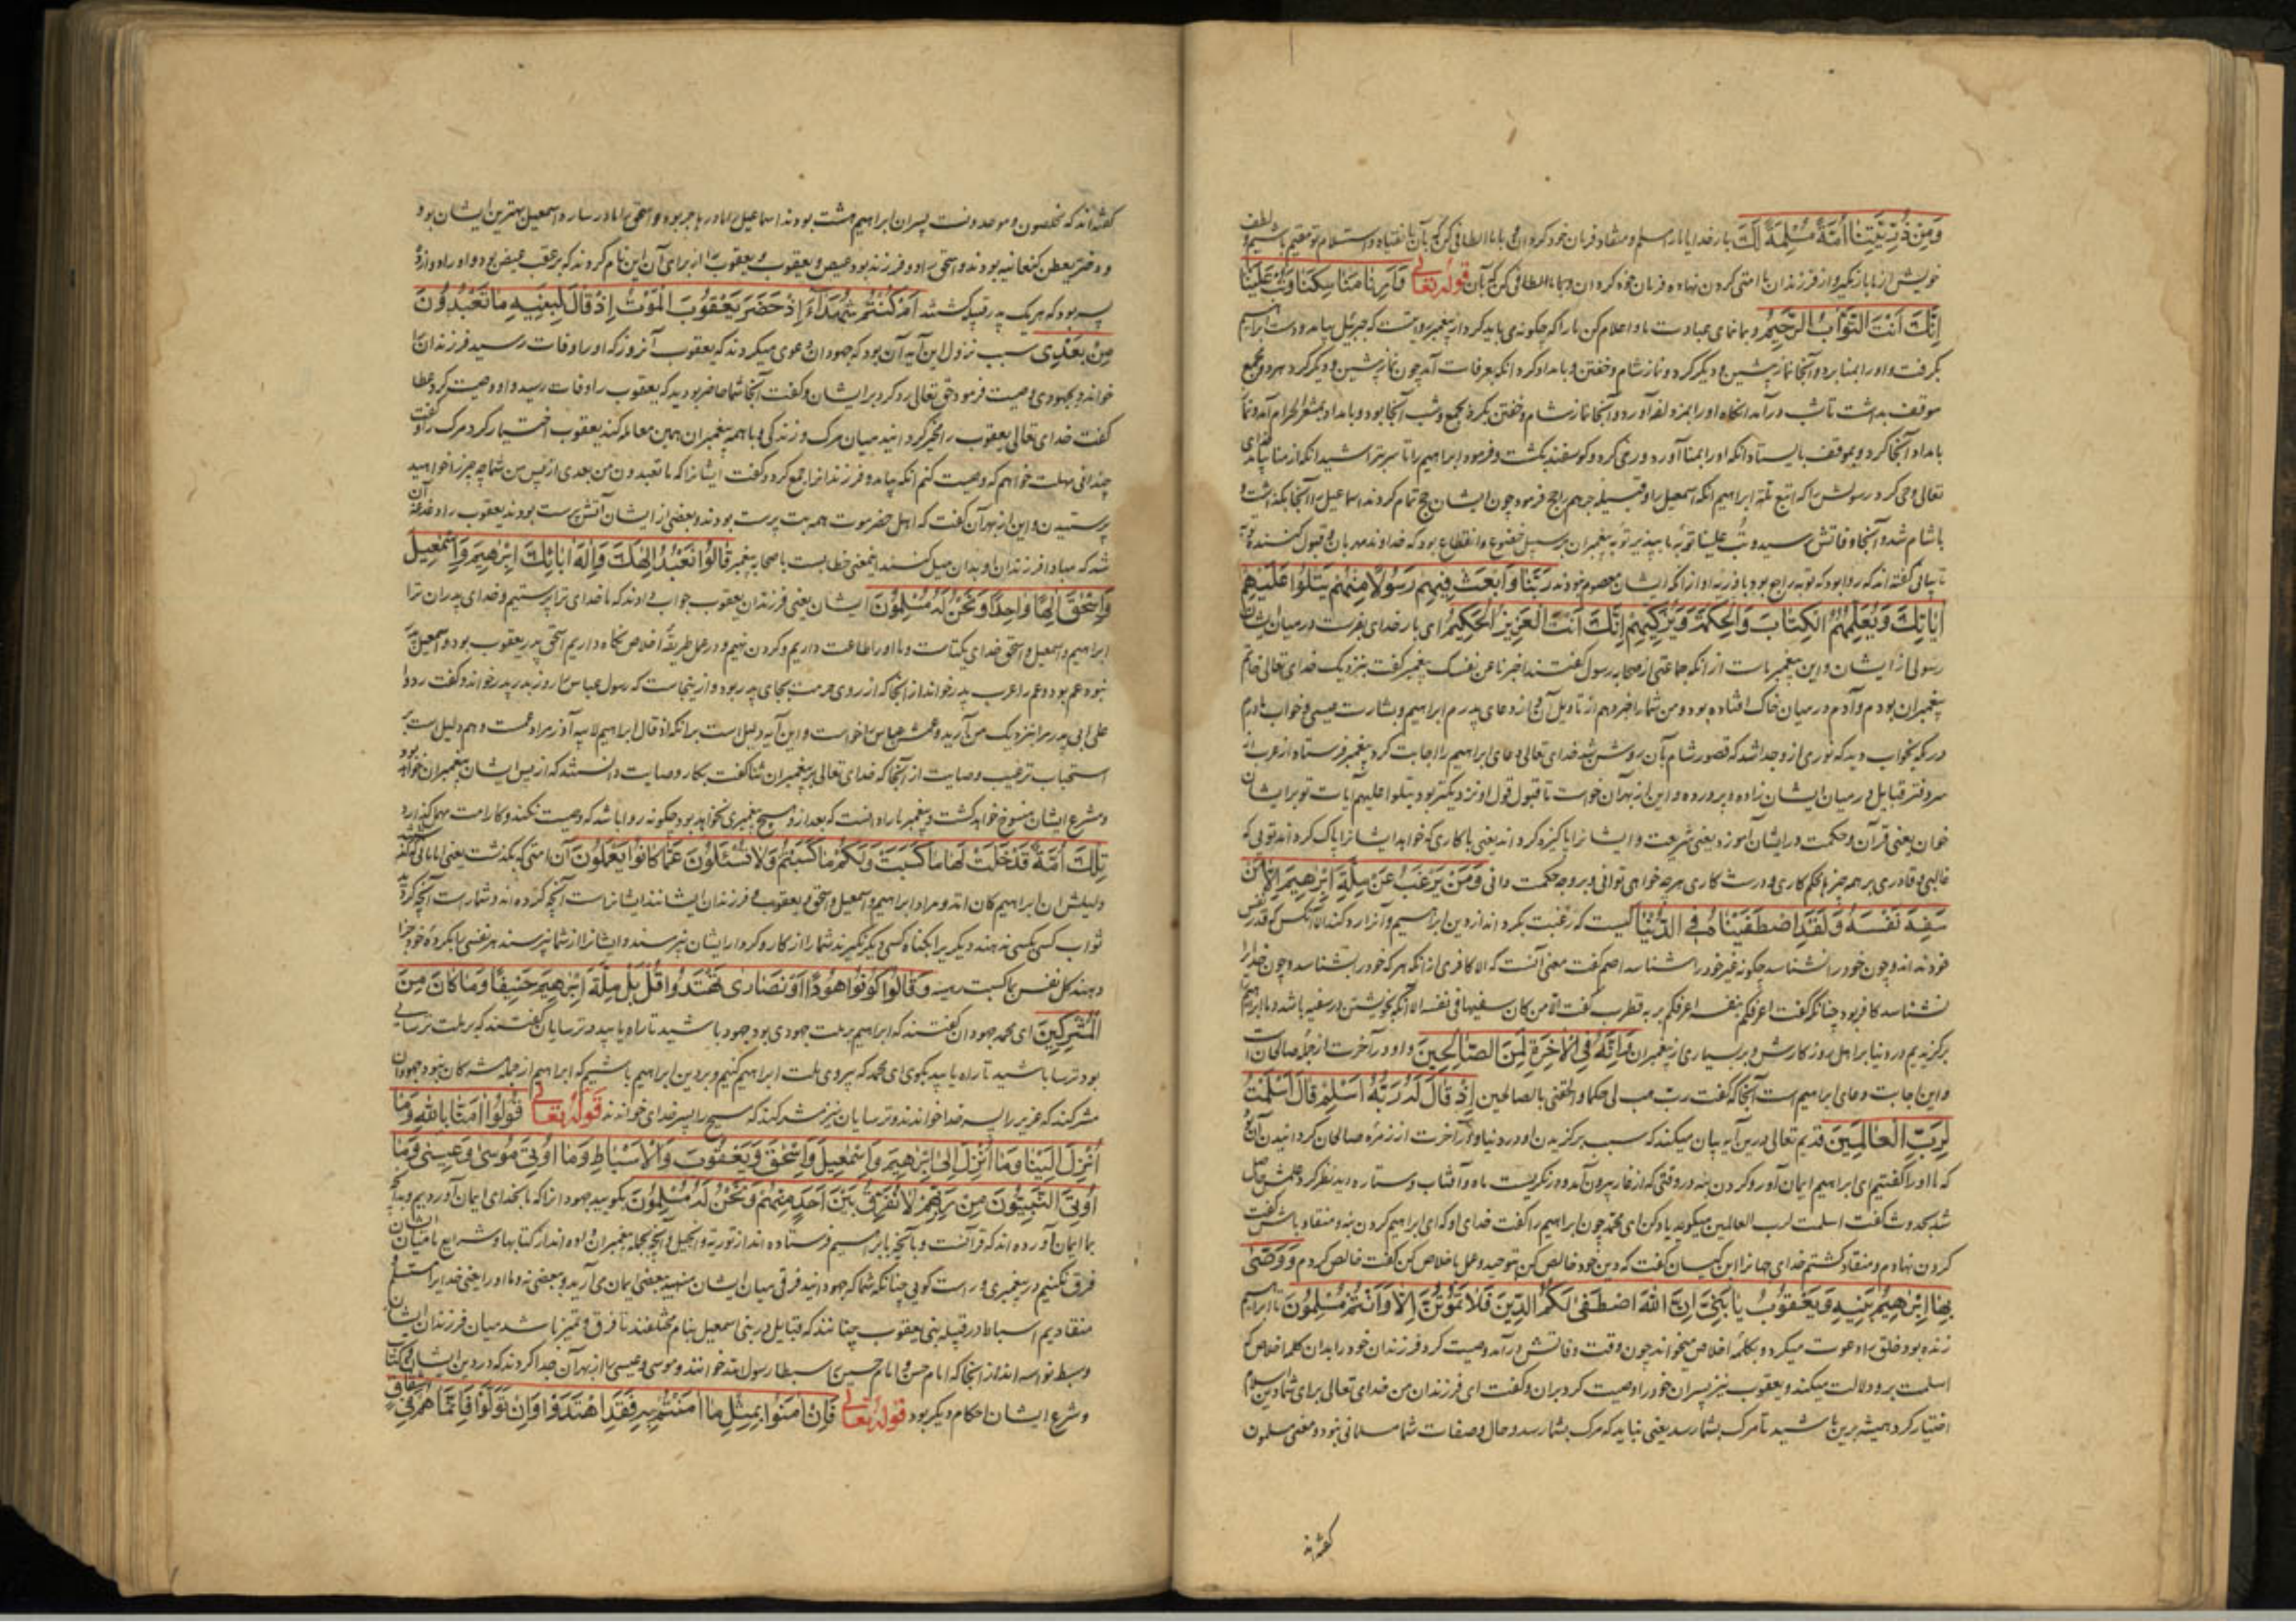 وَمِنْ ذُرِّيَّتِنَا أُمَّةً مُسْلِمَةً لَكَ بار خدایا ما را مسلم و منقاد فرمان خود کردان و با ما الطافی کن که بآن بانقیاد و استسلام تو مقیم باشیم و لطف
خویش از ما باز مگیر و از فرزندان ما امتی کردن نهاده فرمان خود کردان و با ما الطافی کن که بآن قوله تعالی وَاَرِنَا مَنَاسِكَنَا وَتُبْ عَلَيْنَا
اِنَّكَ اَنْتَ التَّوَّابُ الرَّحِيمُ و بما نمای عبادت ما و اعلام کن ما را که چکونه می باید کرد که جبرئیل بیامد و دست ابراهیم
بکرفت و او را بمنا برد و آنجا نماز پیشین و دیکر کرد و نماز شام و خفتن و بامداد کرد انکه بعرفات آمد چون نماز پیشین و دیکر کرد
موقف بداشت تا شب درآمد انکاه او را بمزدلفه آورد و آنجا نماز شام و خفتن بکرد بجمع و شب آنجا بود و بامداد بمشعر الحرام آمد و نماز
بامداد آنجا کرد و بموقف بایستاد انکه او را بمنا آورد و رمی کرد و کوسفند بکشت و فرمود ابراهیم را تا سر بتراشید انکه از منا خدای
تعالی وحی کرد رسولش را که اتبع ملة ابراهیم انکه اسمعیل را و قبیله جرهم را حج فرمود چون ایشان حج تمام کردند اسماعیل را آنجا بکذاشت و
با شام شد و آنجا وفاتش رسید وتب علینا توبه ما بپذیر توبه پیغمبران بر سبیل خضوع و انقطاع بود که خداوند مهربان و قبول کننده
کفته اند که روا بود که توبه راجع بود با فرزند او از انکه ایشان معصوم نبودند رَبَّنَا وَابْعَثْ فِيهِمْ رَسُولًا مِنْهُمْ يَتْلُوا عَلَيْهِمْ
اٰيَاتِكَ وَيُعَلِّمُهُمُ الْكِتَابَ وَالْحِكْمَةَ وَيُزَكِّيهِمْ اِنَّكَ اَنْتَ الْعَزِيزُ الْحَكِيمُ ای بار خدای بفرست در میان ایشان
رسولی از ایشان و این پیغمبر ماست از انکه جماعتی از صحابه رسول کفتند اخبرنا عن نفسک پیغمبر کفت بنزدیک خدای تعالی خاتم
پیغمبران بودم و آدم در میان خاک افتاده بود و من شما را خبر دهم از تاویل آن من از دعای پدرم ابراهیم و بشارت عیسی و خواب مادرم
در که بخواب دید که نوری از و جدا شد که قصور شام بآن روشن شد خدای تعالی دعای ابراهیم را اجابت کرد پیغمبر فرستاد از عرب
قبایل در میان ایشان زاده و پرورده و این از بهر آن خواست تا قبول قول او نزدیکتر بود یتلوا علیهم آیات تو بر ایشان
خوان یعنی قرآن و حکمت در ایشان آموزد یعنی شریعت و ایشانرا پاکیزه کرداند یعنی با کاری که خواند ایشانرا پاک کرداند تویی که
غالبی و قادری بر همه چیز محکم کاری و درست کاری هر چه خواهی توانی و بر وجه حکمت دانی وَمَنْ يَرْغَبُ عَنْ مِلَّةِ اِبْرٰهِيمَ اِلَّا مَنْ
سَفِهَ نَفْسَهُ وَلَقَدِ اصْطَفَيْنَاهُ فِي الدُّنْيَا کیست که رغبت بکرداند از دین ابراهیم و آنرا رد کند الا آنکس که قدر نفس
خود نداند و چون خود را نشناسد چکونه غیر خود را شناسد اصم کفت معنی آنست که الا کافری از انکه هر که خود را بشناسد و چون خدا را
نشناسد کافر بود چنانکه کفت اعرفکم بنفسه اعرفکم بربه قطرب کفت الا من کان سفیها فی نفسه
برکزیدیم در دنیا بر اهل روزکارش و بر بسیاری از پیغمبران وَاِنَّهُ فِي الْاٰخِرَةِ لَمِنَ الصَّالِحِينَ و او در آخرت از جمله صالحان است
و این اجابت دعای ابراهیم است آنجا که کفت رب هب لی حکما و الحقنی بالصالحین اِذْ قَالَ لَهُ رَبُّهُ اَسْلِمْ قَالَ اَسْلَمْتُ
لِرَبِّ الْعَالَمِينَ قدیم تعالی درین آیه بیان میکند که سبب برکزیدن او در دنیا و در آخرت از زمره صالحان کردانیدن آن بود
که ما او را کفتیم ای ابراهیم ایمان آور و کردن بنه در وقتی که از غار بیرون آمد و در نکریست ماه و آفتاب و ستاره دید نظر کرد علمش حاصل
شد بحدوث کفت اسلمت لرب العالمین میکوید یاد کن ای محمد چون ابراهیم را کفت خدای او که ای ابراهیم کردن بنه و منقاد باش کفت
کردن نهادم و منقاد کشتم خدای جهانرا ابن کیسان کفت که دین خود خالص کن بتوحید و عمل باخلاص کن کفت خالص کردم وَوَصّٰى
بِهَا اِبْرٰهِيمُ بَنِيهِ وَيَعْقُوبُ يَا بَنِيَّ اِنَّ اللّٰهَ اصْطَفٰى لَكُمُ الدِّينَ فَلَا تَمُوتُنَّ اِلَّا وَاَنْتُمْ مُسْلِمُونَ تا ابراهیم
زنده بود خلق را دعوت میکرد و بکلمه اخلاص میخواند چون وقت وفاتش درآمد وصیت کرد فرزندان خود را بدان کلمه اخلاص که
اسلمت برو دلالت میکند و یعقوب نیز پسران خود را وصیت کرد بران و کفت ای فرزندان من خدای تعالی برای شما دین اسلام
اختیار کرد همیشه برین باشید تا مرک بشما رسد یعنی نباید که مرک بشما رسد و حال و صفات شما مسلمانی نبود و معنی مسلمون
کفته اند
کفته اند که مخلصون و موحدونست پسران ابراهیم هشت بودند اسماعیل را مادر هاجر بود و اسحق را مادر ساره و اسمعیل بهترین ایشان بود
و دختر یقطن کنعانیه بودند و اسحق را دو فرزند بود عیص و یعقوب و یعقوب را از برای آن این نام کردند که بر عقب عیص بود و او را دوازده
پسر بود که هر یک پدر قبیله کشتند اَمْ كُنْتُمْ شُهَدَاءَ اِذْ حَضَرَ يَعْقُوبَ الْمَوْتُ اِذْ قَالَ لِبَنِيهِ مَا تَعْبُدُونَ
مِنْ بَعْدِي سبب نزول این آیه آن بود که جهودان دعوی میکردند که یعقوب آنروز که او را وفات رسید فرزندان را
خواند و بجهودی وصیت فرمود حق تعالی رد کرد بر ایشان و کفت آنجا شما حاضر بودید که یعقوب را وفات رسید و او وصیت کرد عطا
کفت خدای تعالی یعقوب را مخیر کردانید میان مرک و زندکی و با همه پیغمبران همین معامله کند یعقوب اختیار کرد مرک را و کفت
چندانی مهلت خواهم که وصیت کنم انکه بیامد و فرزندانرا جمع کرد و کفت ایشانرا که ما تعبدون من بعدی از پس من شما چه چیز را خواهید
پرستیدن و این از بهر آن کفت که اهل حضرموت همه بت پرست بودند و بعضی از ایشان آتش پرست بودند یعقوب را دغدغه آن
شد که مبادا فرزندان او بدان میل کنند بعضی خطابست با صحابه پیغمبر قَالُوا نَعْبُدُ اِلٰهَكَ وَاِلٰهَ اٰبَائِكَ اِبْرٰهِيمَ وَاِسْمٰعِيلَ
وَاِسْحٰقَ اِلٰهًا وَاحِدًا وَنَحْنُ لَهُ مُسْلِمُونَ ایشان یعنی فرزندان یعقوب جواب دادند که ما خدای ترا پرستیم و خدای پدران ترا
ابراهیم و اسمعیل و اسحق خدای یکتاست و ما او را طاعت داریم و کردن نهیم و در عمل طریقه اخلاص نکاه داریم اسحق پدر یعقوب بود و اسمعیل پدر
نبود عم بود و عم را عرب پدر خواند از آنجا که از روی حرمت بجای پدر بود و از ینجاست که رسول عباس را روز بدر پدر خواند و کفت ردوا
علی ابی پدر مرا بنزدیک من آرید و عمش عباس را خواست و این آیه دلیلست برانکه اذ قال ابراهیم لابیه آذر مراد عمست و هم دلیل است بر
استحباب ترغیب وصایت از آنجا که خدای تعالی بر پیغمبران ثنا کفت بکار وصایت و دانستند که از پس ایشان پیغمبران خواهند بود
و شرع ایشان منسوخ خواهد کشت و پیغمبر ما را دانست که بعد ازو هیچ پیغمبری نخواهد بود چکونه روا باشد که وصیت نکند و کار امت مهمل کذارد
تِلْكَ اُمَّةٌ قَدْ خَلَتْ لَهَا مَا كَسَبَتْ وَلَكُمْ مَا كَسَبْتُمْ وَلَا تُسْئَلُونَ عَمَّا كَانُوا يَعْمَلُونَ آن امتی که بکذشت یعنی
ابراهیم کان امة و مراد ابراهیم و اسمعیل و اسحق و یعقوب و فرزندان ایشانند ایشانراست آنچه کرده اند و شما راست آنچه کردید
ثواب کسی بکسی ندهند و یکی را بکناه کسی دیکر نکیرند شما را از کار و کردار ایشان نپرسند و ایشانرا از شما نپرسند هر نفسی را بکرده خود جزا
دهند کل نفس بما کسبت رهینه وَقَالُوا كُونُوا هُودًا اَوْ نَصَارٰى تَهْتَدُوا قُلْ بَلْ مِلَّةَ اِبْرٰهِيمَ حَنِيفًا وَمَا كَانَ مِنَ
الْمُشْرِكِينَ ای محمد جهودان کفتند که ابراهیم بر ملت جهودی بود جهود باشید تا راه یابید و ترسایان کفتند که بر ملت ترسایی
بود ترسا باشید تا راه یابید بکوی ای محمد که پیروی ملت ابراهیم کنیم و بر دین ابراهیم باشیم که ابراهیم از جمله مشرکان نبود و جهودان
مشرکند که عزیر را پسر خدا خواندند و ترسایان نیز مشرکند که مسیح را پسر خدای خواندند قوله تعالی قُولُوا اٰمَنَّا بِاللّٰهِ وَمَا
اُنْزِلَ اِلَيْنَا وَمَا اُنْزِلَ اِلٰى اِبْرٰهِيمَ وَاِسْمٰعِيلَ وَاِسْحٰقَ وَيَعْقُوبَ وَالْاَسْبَاطِ وَمَا اُوتِيَ مُوسٰى وَعِيسٰى وَمَا
اُوتِيَ النَّبِيُّونَ مِنْ رَبِّهِمْ لَا نُفَرِّقُ بَيْنَ اَحَدٍ مِنْهُمْ وَنَحْنُ لَهُ مُسْلِمُونَ بکویید جهودانرا که ما بخدای ایمان آوردیم و بدانچه
بما ایمان آورده اند که قرآنست و بآنچه بابراهیم فرستاده اند از توریة و انجیل و آنچه بجمله پیغمبران داده اند از کتابها و شرایع ما میان ایشان
فرق نکنیم در پیغمبری و راست کویی چنانکه شما که جهودانید فرقی میان ایشان بنهید ببعضی ایمان می آرید و ببعضی نه و ما او را یعنی خدایرا مستسلم و
منقادیم اسباط در قبیله بنی یعقوب چنانند که قبایل در بنی اسمعیل بنام مختلفند تا فرق و تمیز باشد میان فرزندان ایشان
و سبط نواسه اند از آنجا که امام حسن و امام حسین را سبط رسول الله خوانند و موسی و عیسی را از بهر آن جدا کردند که در دین ایشان کتاب
و شرع ایشان احکام دیکر بود قوله تعالی فَاِنْ اٰمَنُوا بِمِثْلِ مَا اٰمَنْتُمْ بِهِ فَقَدِ اهْتَدَوْا وَاِنْ تَوَلَّوْا فَاِنَّمَا هُمْ فِي شِقَاقٍ